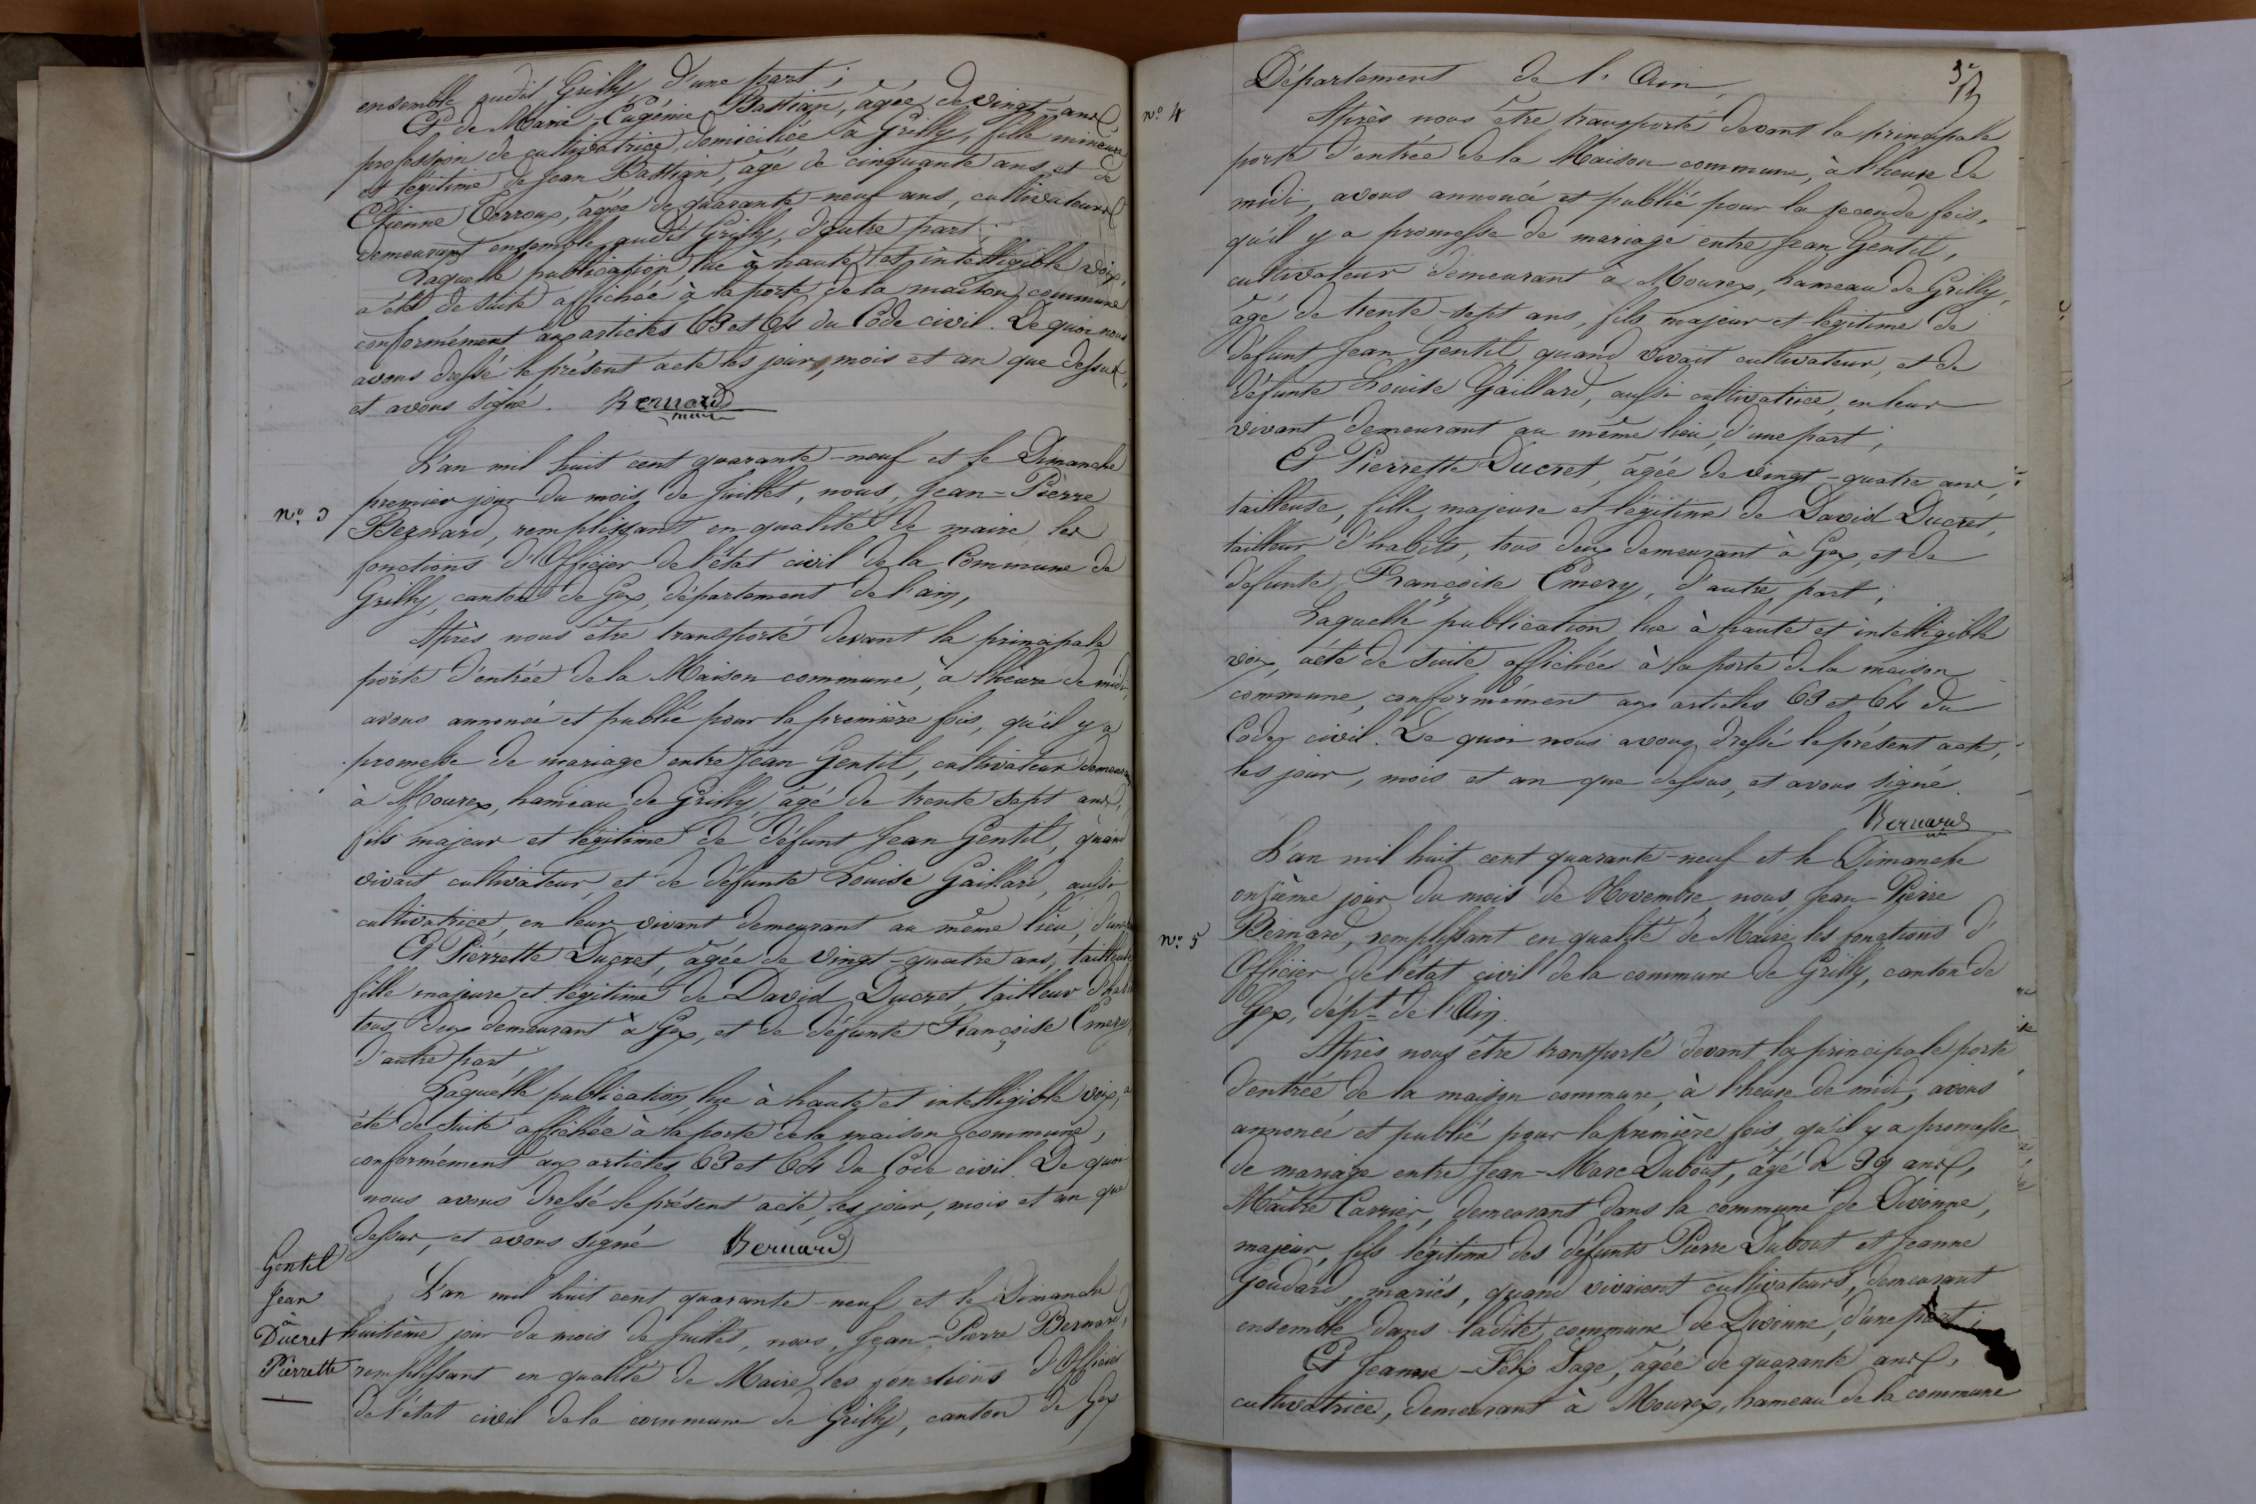 ensemble audit Grilly d'une part;
Et de Marie-Eugénie Bastian, âgée de vingt-ans,
profession de cultivatrice, domiciliée à Grilly, fille mineure
et légitime de Jean Bastian, âgé de cinquante ans, et de
Etienne âgée de quarante-neuf ans, cultivateurs
demeurant ensemble audit Grilly, d'autre part;
Laquelle publication, lue à haute et intelligible voix,
a été de suite affichée à la porte de la maison commune
conformément aux articles 63 et 64 du Code civil. De quoi nous
avons dressé le présent acte les jour, mois et an que dessus,
et avons signé. Bernard
maire
L'an mil huit cent quarante-neuf et le Dimanche
premier jour du mois de Juillet, nous, Jean-Pierre
N° 3
Bernard, remplissant en qualité de maire les
fonctions d'Officier de l'état civil de la Commune de
Grilly, canton de Gex, département de l'ain,
Après nous être transporté devant la principale
porte d'entrée de la Maison commune, à l'heure de midi,
avons annoncé et publié pour la première fois, qu'il y a
promesse de mariage entre Jean Gentil, cultivateur demeurant
à Mourex, hameau de Grilly, âgé de trente sept ans,
fils majeur et légitime de défunt Jean Gentil, quand
vivait cultivateur, et de défunte Louise Gaillard, aussi
cultivatrice, en leur vivant demeurant au même lieu, d'une
Et Pierrette Ducret, âgée de vingt-quatre ans, tailleuse
fille majeure et légitime de David Ducret, tailleur d'habits
tous deux demeurant à Gex, et de défunte Françoise Emery
d'autre part,
Laquelle publication, lue à haute et intelligible voix, a
été de suite affichée à la porte de la maison commune,
conformément aux articles 63 et 64 du Code civil. De quoi
nous avons dressé le présent acte, les jour, mois et an que
dessus, et avons signé Bernard
Gentil
Jean
à
Ducret
Pierrette
L'an mil huit cent quarante-neuf et le Dimanche
huitième jour du mois de Juillet, nous, Jean-Pierre Bernard,
remplissant en qualité de Maire les fonctions d'Officier
de l'état civil de la commune de Grilly, canton de Gex
Département de l'Ain,
N° 4
Après nous être transporté devant la principale
porte d'entrée de la Maison commune, à l'heure de
midi, avons annoncé et publié pour la seconde fois,
qu'il y a promesse de mariage entre Jean Gentil,
cultivateur demeurant à Mourex, hameau de Grilly,
âgé de trente-sept ans, fils majeur et légitime de
défunt Jean Gentil, quand vivait cultivateur, et de
défunte Louise Gaillard, aussi cultivatrice, en leur
vivant demeurant au même lieu, d'une part;
Et Pierrette Ducret, âgée de vingt-quatre ans,
tailleuse, fille majeure et légitime de David Ducret,
tailleur d'habits, tous deux demeurant à Gex, et de
défunte Françoise Emery, d'autre part;
Laquelle publication, lue à haute et intelligible
voix, a été de suite affichée à la porte de la maison
commune, conformément aux articles 63 et 64 du
Code civil. De quoi nous avons dressé le présent acte,
les jour, mois et an que dessus, et avons signé.
Bernard
L'an mil huit cent quarante-neuf et le Dimanche
onzième jour du mois de Novembre, nous, Jean-Pierre
N° 5
Bernard, remplissant en qualité de Maire les fonctions d'
Officier de l'état civil de la commune de Grilly, canton de
Gex, dépt de l'Ain.
Après nous être transporté devant la principale porte
d'entrée de la maison commune, à l'heure de midi, avons
annoncé et publié pour la première fois, qu'il y a promesse
de mariage entre Jean-Marc Dubout, âgé de 39 ans,
Maître Carrier, demeurant dans la commune de Divonne,
majeur, fils légitime des défunts Pierre Dubout et Jeanne
Goudard, mariés, quand vivaient cultivateurs, demeurant
ensemble dans ladite commune de Divonne, d'une part;
Et Jeanne-Félix Sage, âgée de quarante ans,
cultivatrice, demeurant à Mourex, hameau de la commune